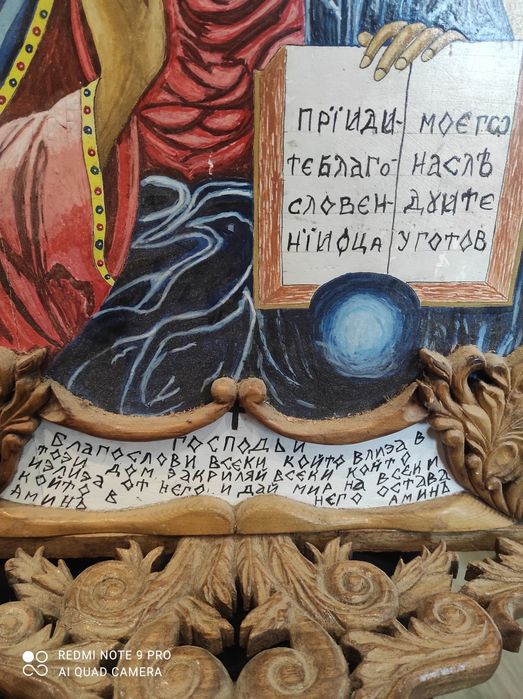 ПРЇИДИ-
ТЕ БЛАГО-
СЛОВЕН-
НЇИ ОЦА
МОЕГѠ
НАСЛѢ
ДУИТЕ
УГОТОВ
ГОСПОДЬИ
БЛАГОСЛОВИ ВСЕКИ КОЙТО ВЛИЗА В
ТОЗИ ДОМ ЗАКРИЛЯЙ ВСЕКИ КОЙТО
ИЗЛИЗА ОТ НЕГО И ДАЙ МИР НА ВСЕКИ
КОЙТО В НЕГО ОСТАВА
АМИНЬ АМИНЬ
REDMI NOTE 9 PRO
AI QUAD CAMERA